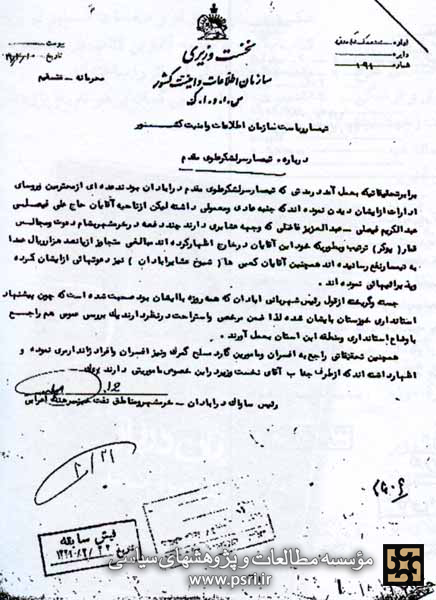 نخست وزیری
سازمان اطلاعات و امنیت کشور
س.ا.و.ا.ک
اداره
دایره
شماره
پیوست
تاریخ
محرمانه - مستقیم
تیمسار ریاست سازمان اطلاعات و امنیت کشور
درباره: تیمسار سرلشکر علوی مقدم
برابر تحقیقاتیکه بعمل آمد در مدتی که تیمسار سرلشکر علوی مقدم در آبادان بودند عده ای از معترین و روسای
ادارات از ایشان دیدن نموده اند که جنبه عادی و معمولی داشته لیکن از ناحیه آقایان حاج علی فیصلی
عبدالکریم فیصلی - عبدالعزیز فاضلی که وجهه عشایری دارند چند دفعه در خرمشهر شام دعوت و مجالس
قمار (پوکر) ترتیب و بطوریکه خود این آقایان در خارج اظهار کرده اند مبالغی متجاوز از پانصد هزار ریال عمدا
به تیمسار نفع رسانیده اند همچنین آقایان کعبی ها (شیخ عشایر آبادان) نیز دعوتهائی از ایشان کرده
و پذیرائیهائی نموده اند.
جسته و گریخته از قول رئیس شهربانی آبادان که همه روزه با ایشان بود صحبت شده است که چون پیشنهاد
استانداری خوزستان بایشان شده لذا ضمن مرخصی و استراحت در نظر دارند یک بررسی عمومی هم راجع
باوضاع استانداری و منطقه این استان بعمل آورند.
همچنین تحقیقاتی راجع به افسران و مامورین گارد مسلح گمرک و نیز افسران و افراد ژاندارمری نموده و
اظهار داشته اند که از طرف جناب آقای نخست وزیر در این خصوص ماموریتی دارند
رئیس ساواک در آبادان - خرمشهر و مناطق نفت خیز
فیش سابقه
تاریخ
مؤسسه مطالعات و پژوهشهای سیاسی
www.psri.ir